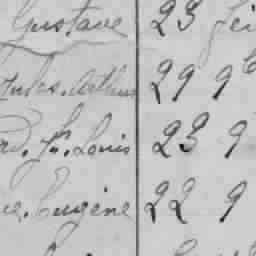 Gustave 23
Jules. Arthur 29 9
Louis 23 9
Eugène 22 9